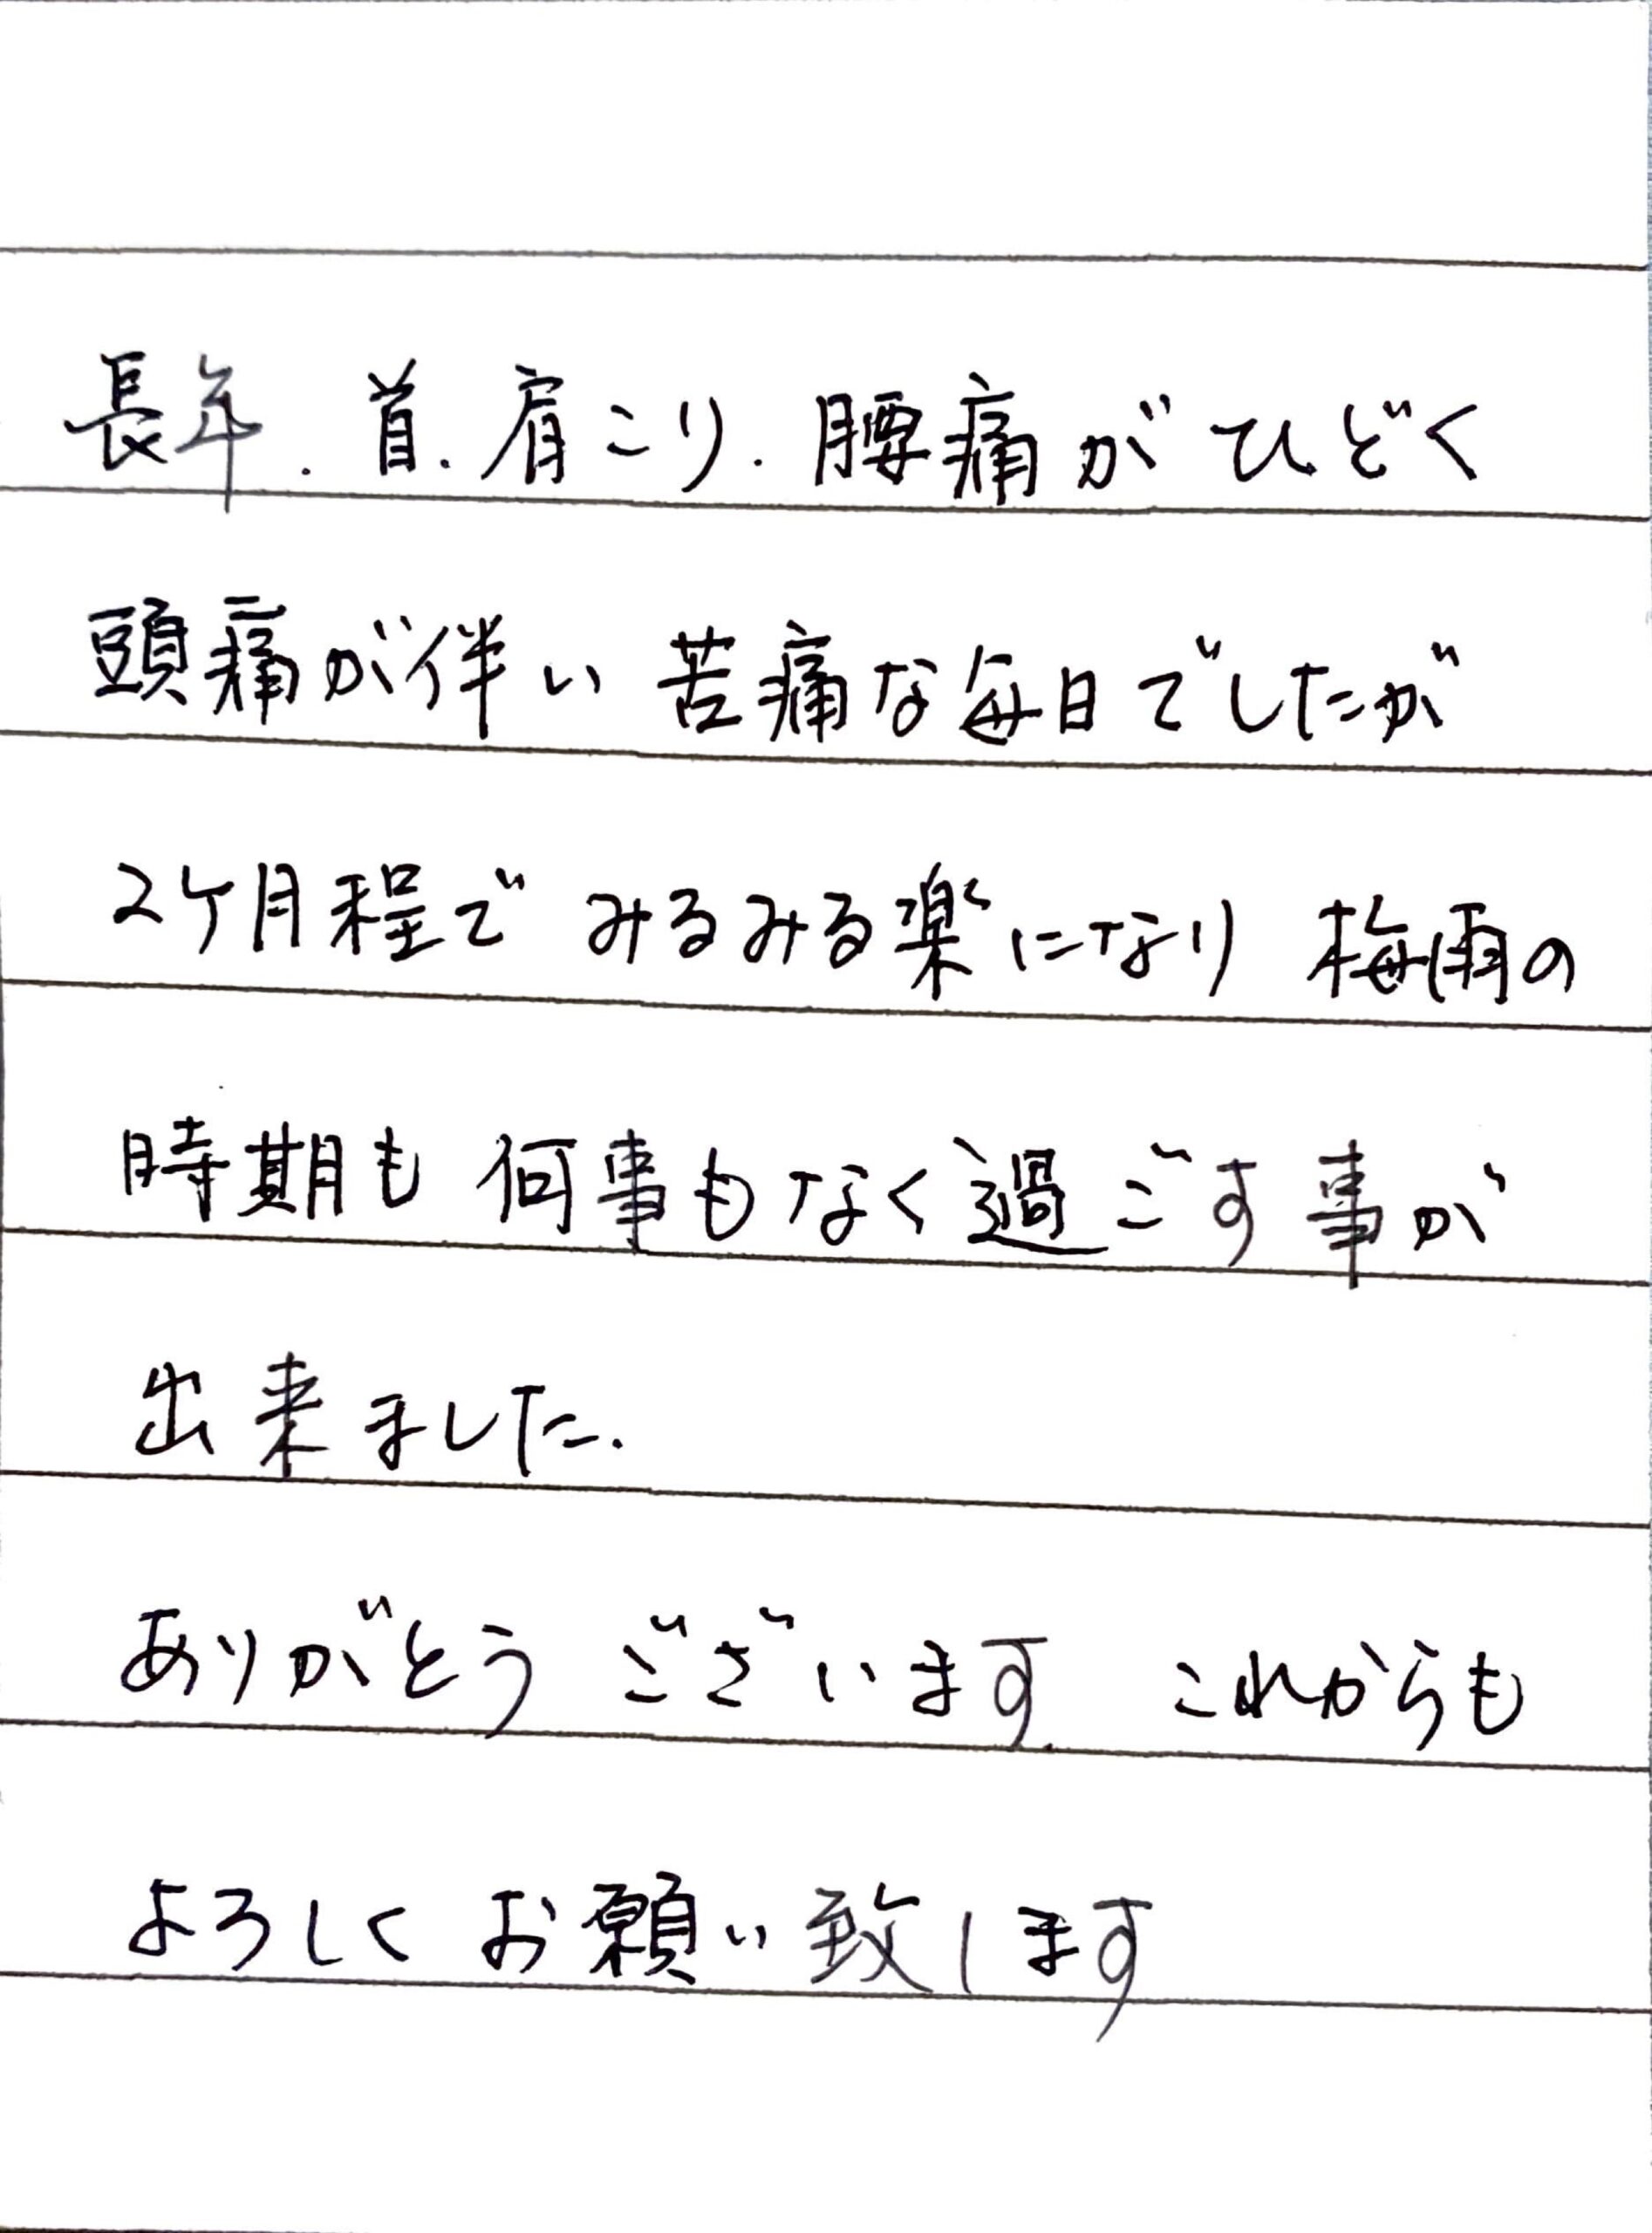 長年.首.肩こり.腰痛がひどく
頭痛が伴い 苦痛な毎日でしたが
2ヶ月程で みるみる楽になり 梅雨の
時期も 何事もなく過ごす事が
出来ました.
ありがとう ございます. これからも
よろしく お願い致します